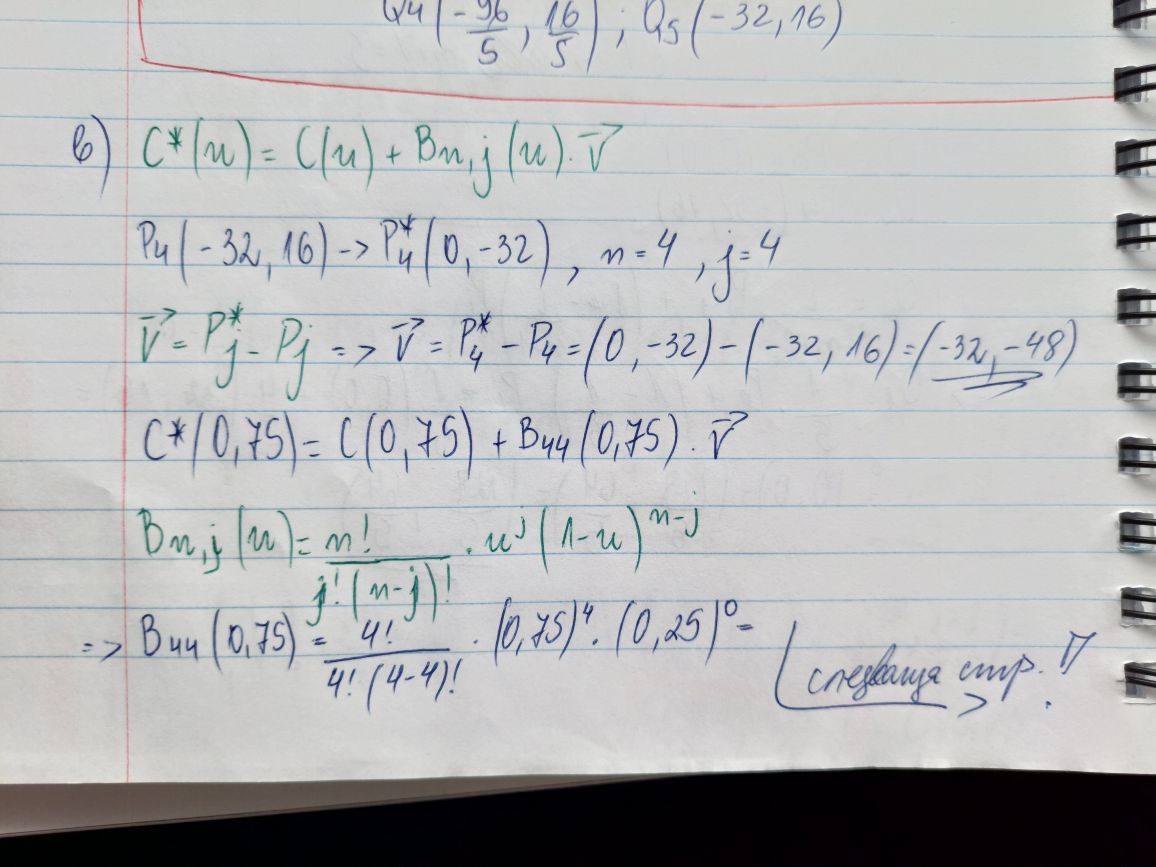 Q₄(-96/5, 16/5); Q₅(-32, 16)
в) C*(u) = C(u) + Bn,j(u).V⃗
P₄(-32, 16) -> P₄*(0, -32), n=4, j=4
V⃗ = Pj* - Pj => V⃗ = P₄* - P₄ = (0, -32) - (-32, 16) = (-32, -48)
C*(0,75) = C(0,75) + B₄₄(0,75).V⃗
Bn,j(u) = n!/j!(n-j)! . u^j (1-u)^(n-j)
=> B₄₄(0,75) = 4!/4!(4-4)! . (0,75)⁴ . (0,25)⁰ =
следваща стр.